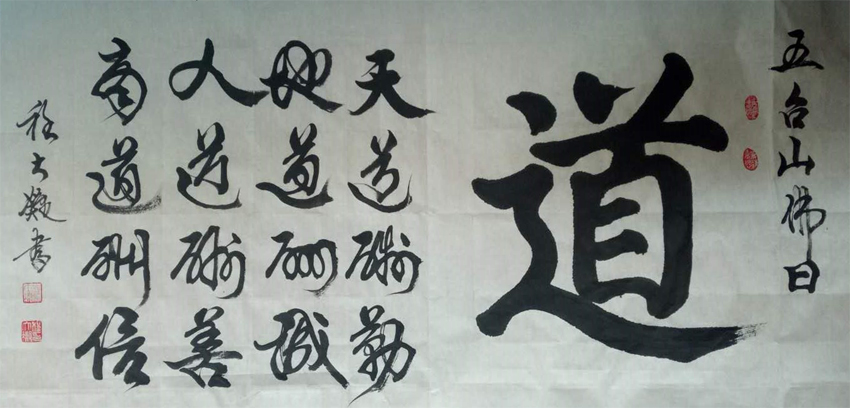 五台山佛曰
道
天道酬勤
地道酬诚
人道酬善
商道酬信